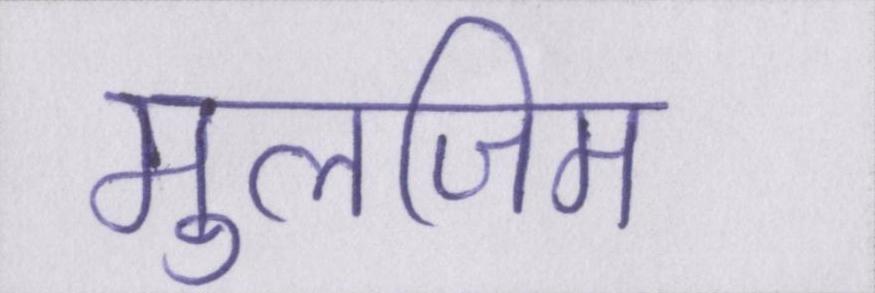 मुलजिम